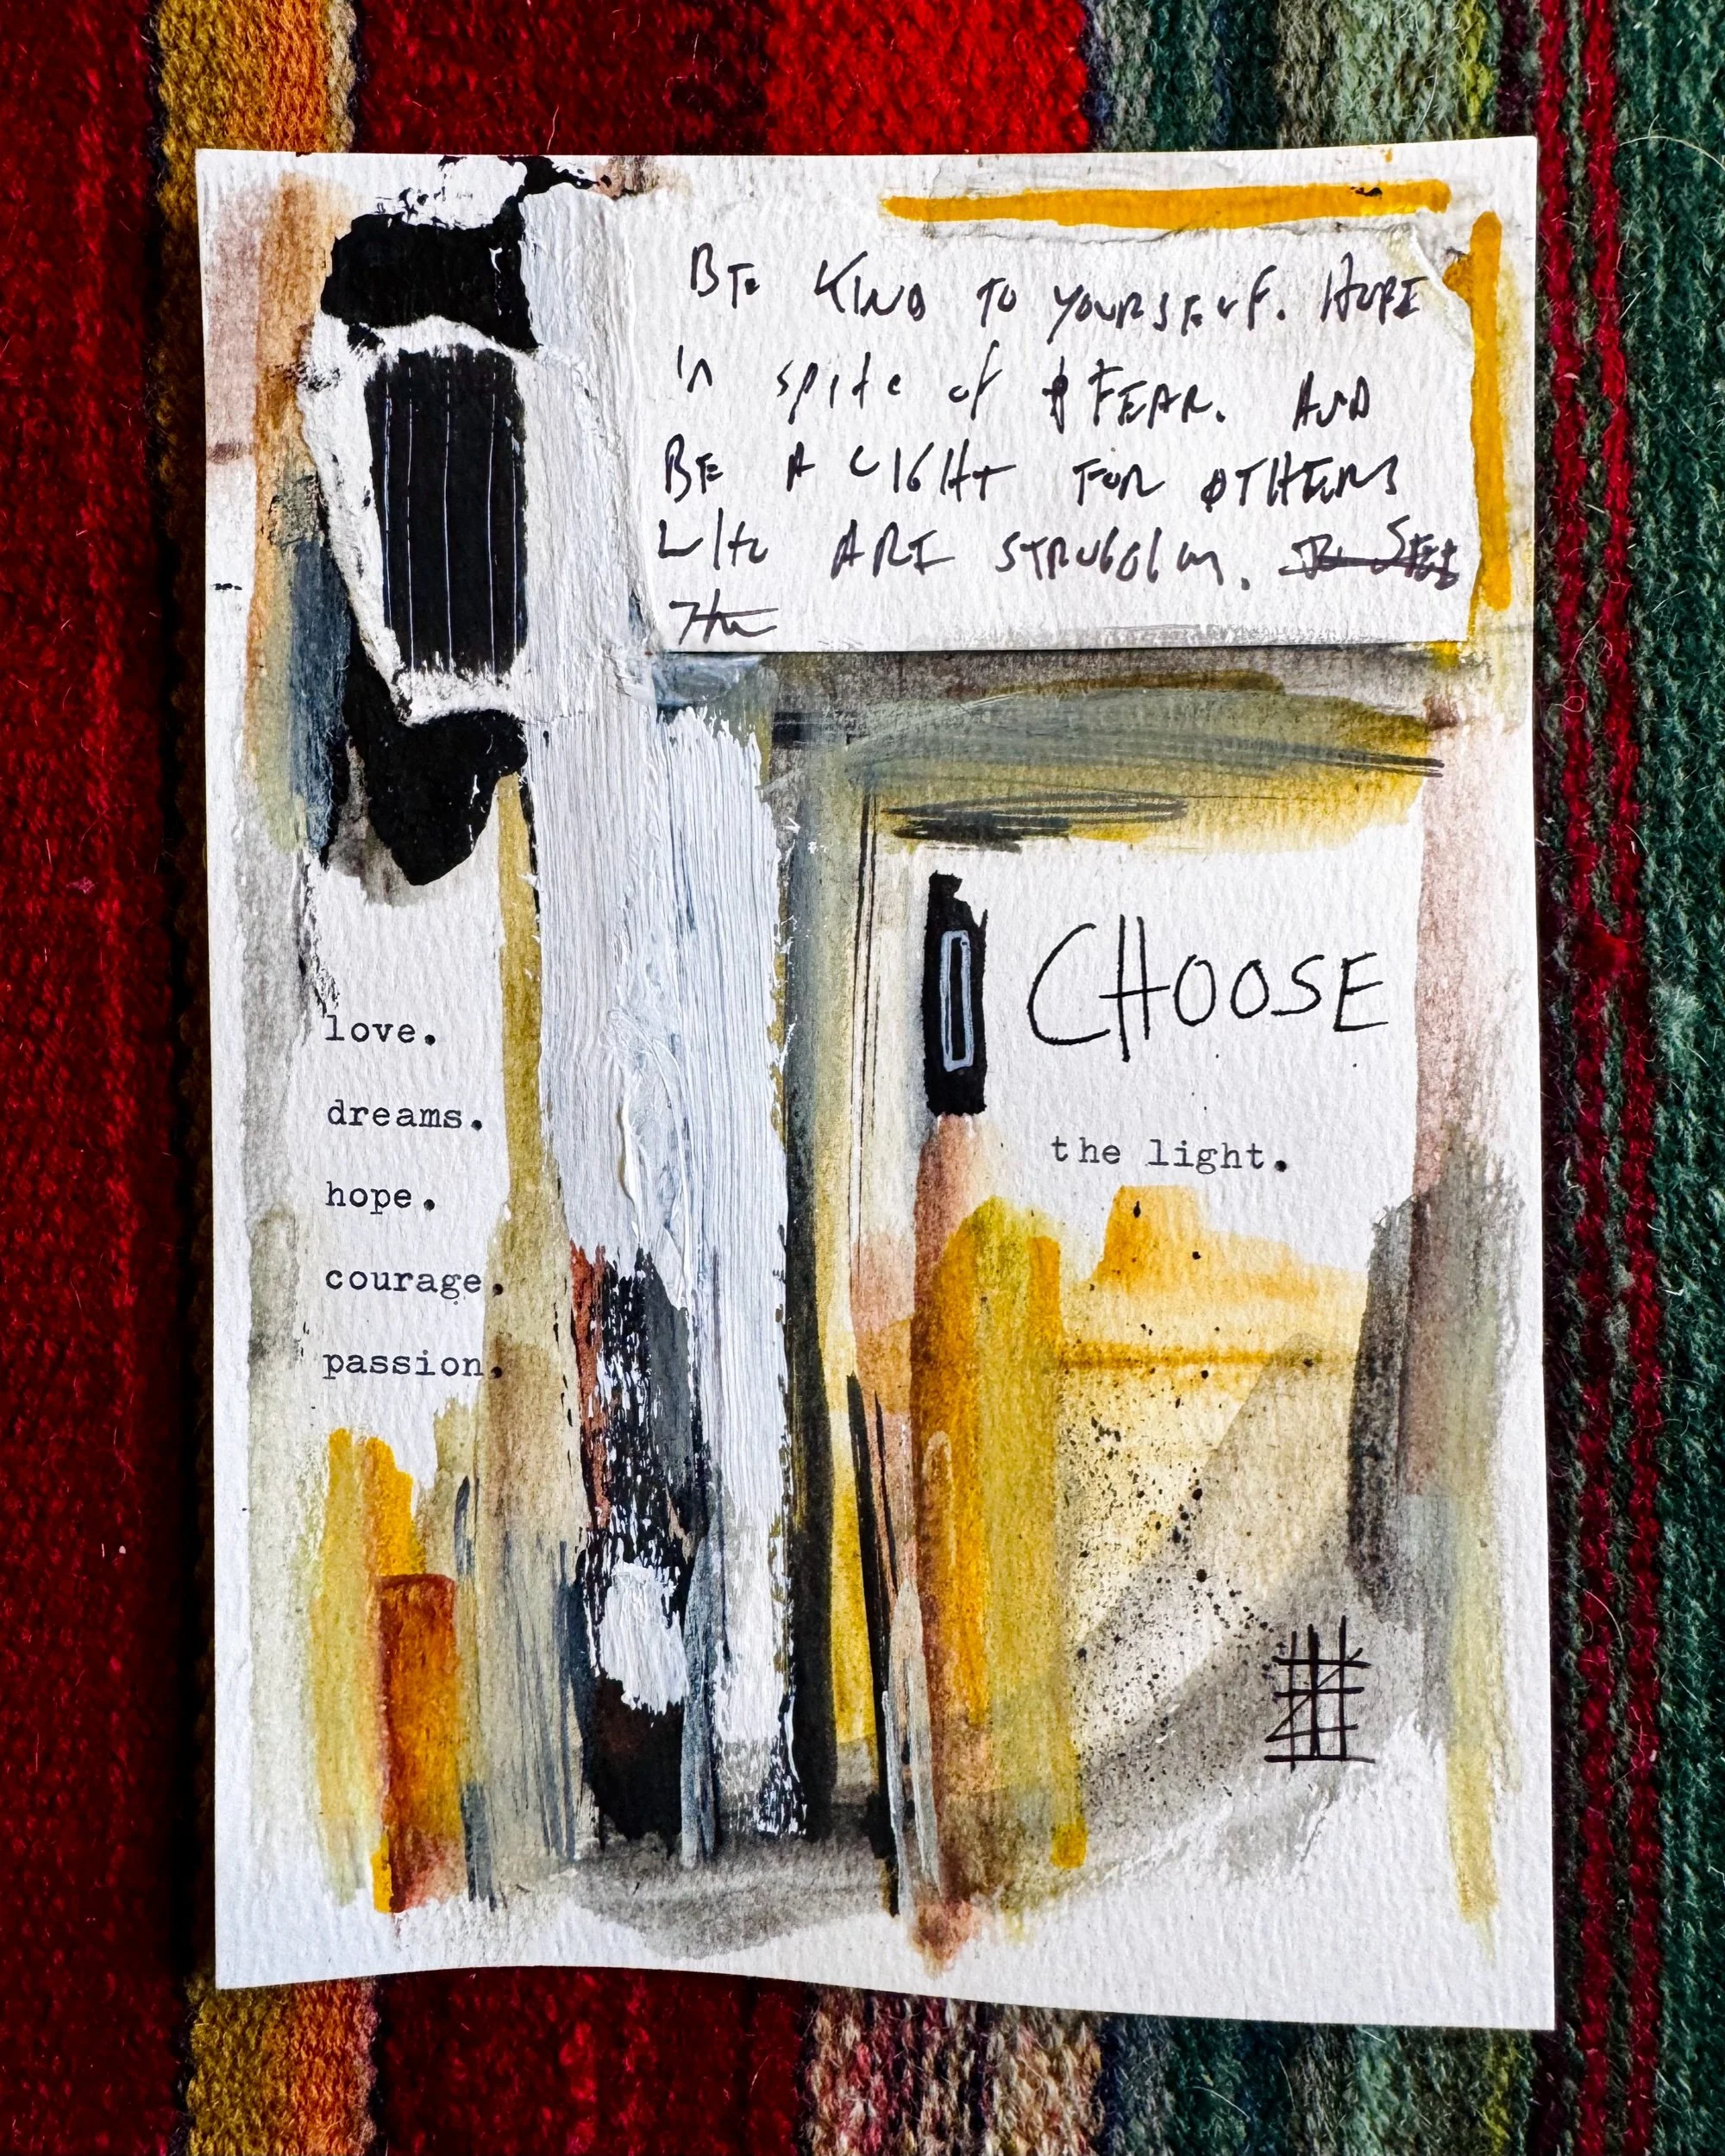 BE KIND TO YOURSELF. HOPE
in spite of FEAR. AND
BE A LIGHT FOR OTHERS
WHO ARE STRUGGLING.
love.
dreams.
hope.
courage.
passion.
CHOOSE
the light.